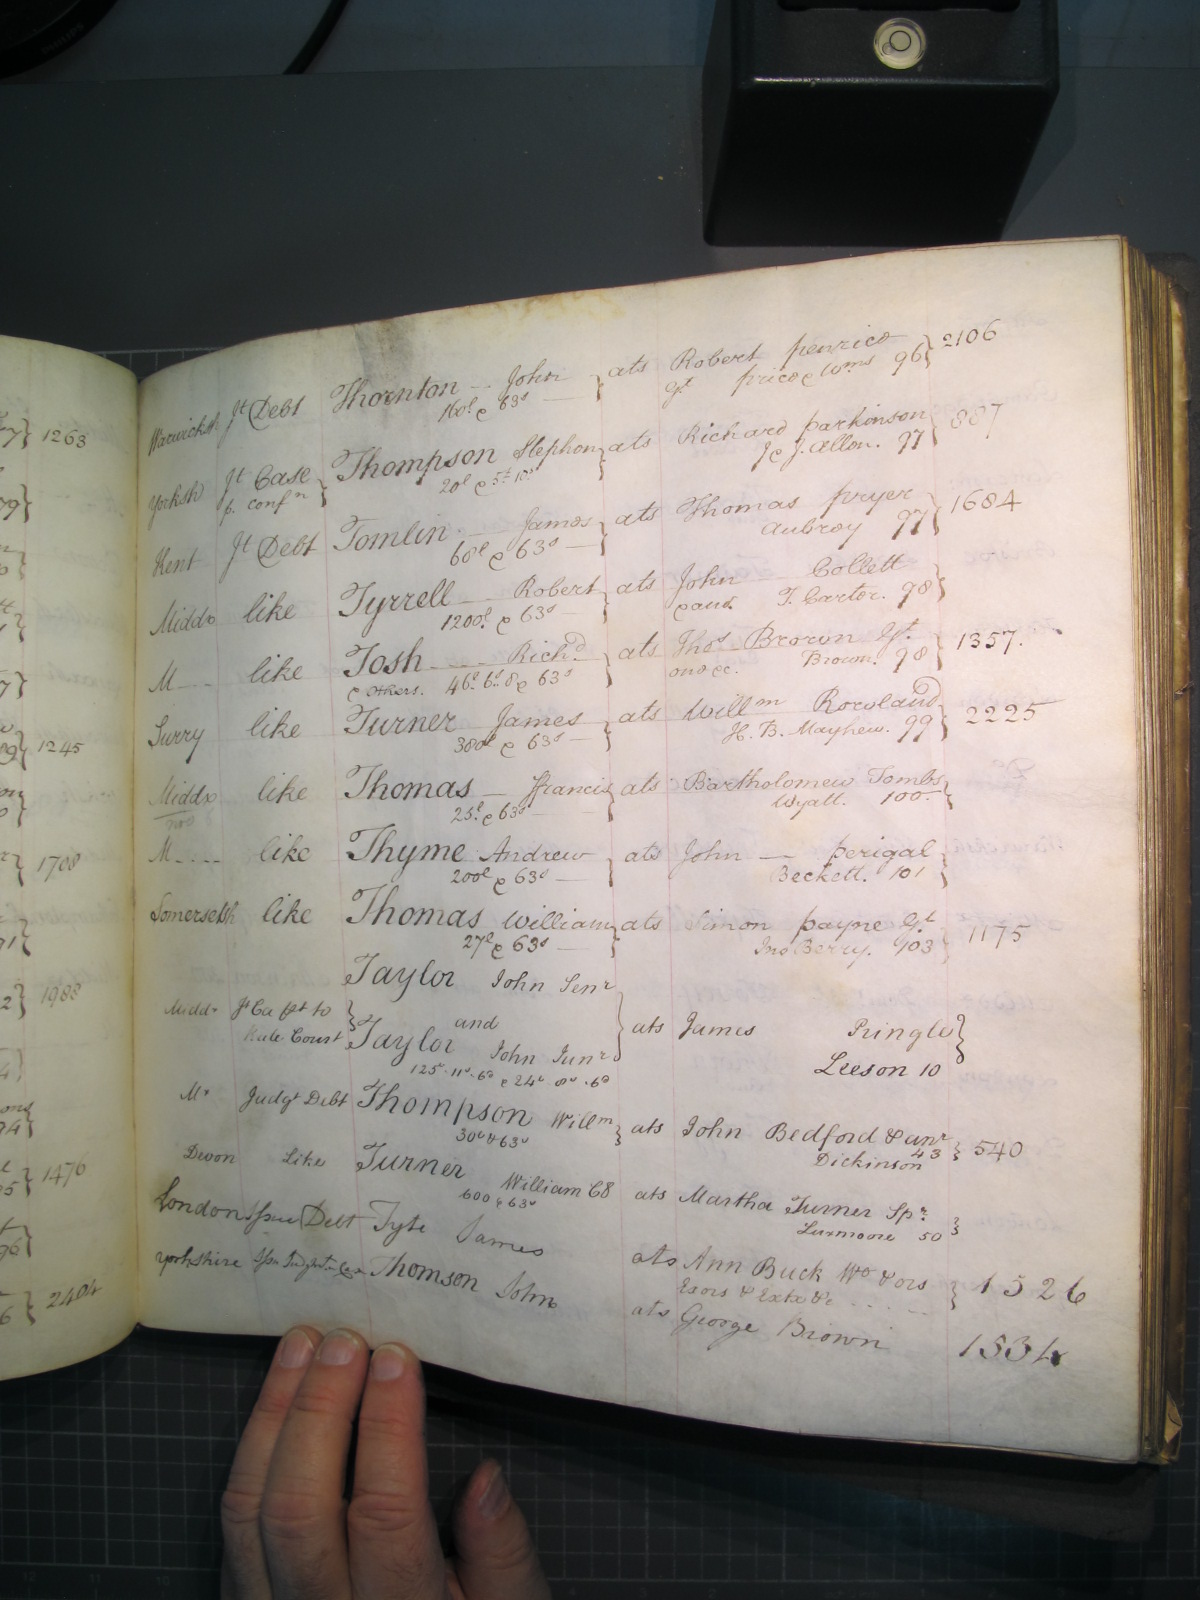 Warwicksh Jt Debt Thornton John ats Robert penrice 2106
160l & 63s gt price & Wms 96
Yorksh Jt Case Thompson Stephen ats Richard parkinson 887
p. confn 20l & 5l 10s J & J. Allen. 97
Kent Jt Debt Tomlin James ats Thomas pryer 1684
60l & 63s Aubrey 97
Middx like Tyrrell Robert ats John Collett
1200l & 63s T. Carter. 98
M like Tosh Richd ats Thos Brown Gt. 1357.
& others. 46l. 6s. 8 & 63s Brown. 98
Surry like Turner James ats Willm Rowland 2225
380l & 63s H. B. Mayhew. 99
Middx like Thomas ffrancis ats Bartholomew Tombs
25l & 63s Wyatt. 100
M like Thyme Andrew ats John perigal
200l & 63s Beckett. 101
Somersetsh like Thomas William ats Simon payne Gt 1175
27l & 63s Jno Berry. 103
Taylor John Senr
Middx Jt Ca pt to and ats James Pringle
Rule Court Taylor John Junr Leeson 10
125. 11s. 6d & 24l. 8s. 6d
Mx Judgt Debt Thompson Willm ats John Bedford & anr 540
30l & 63s Dickinson 43
Devon Like Turner William C8 ats Martha Turner Spr
600 & 63s Luxmoore 50
London Debt Tyte James ats Ann Buck Wo & ors 1526
Exors & Extx &c
Yorkshire Thomson John ats George Brown 1534
1263
1245
1708
1988
1476
2404